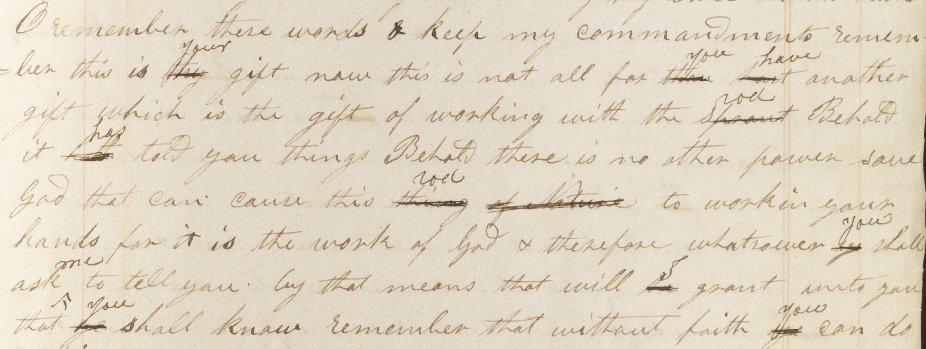 O remember these words & keep my commandments remem-
=ber this is thy your gift now this is not all for thou you hast have another
gift which is the gift of working with the sprout rod Behold
it hath has told you things Behold there is no other power save
God that can cause this thing rod of Nature to work in your
hands for it is the work of God & therefore whatsoever ye you shall
ask me to tell you by that means that will he I grant unto you
that ye you shall know remember that without faith ye you can do